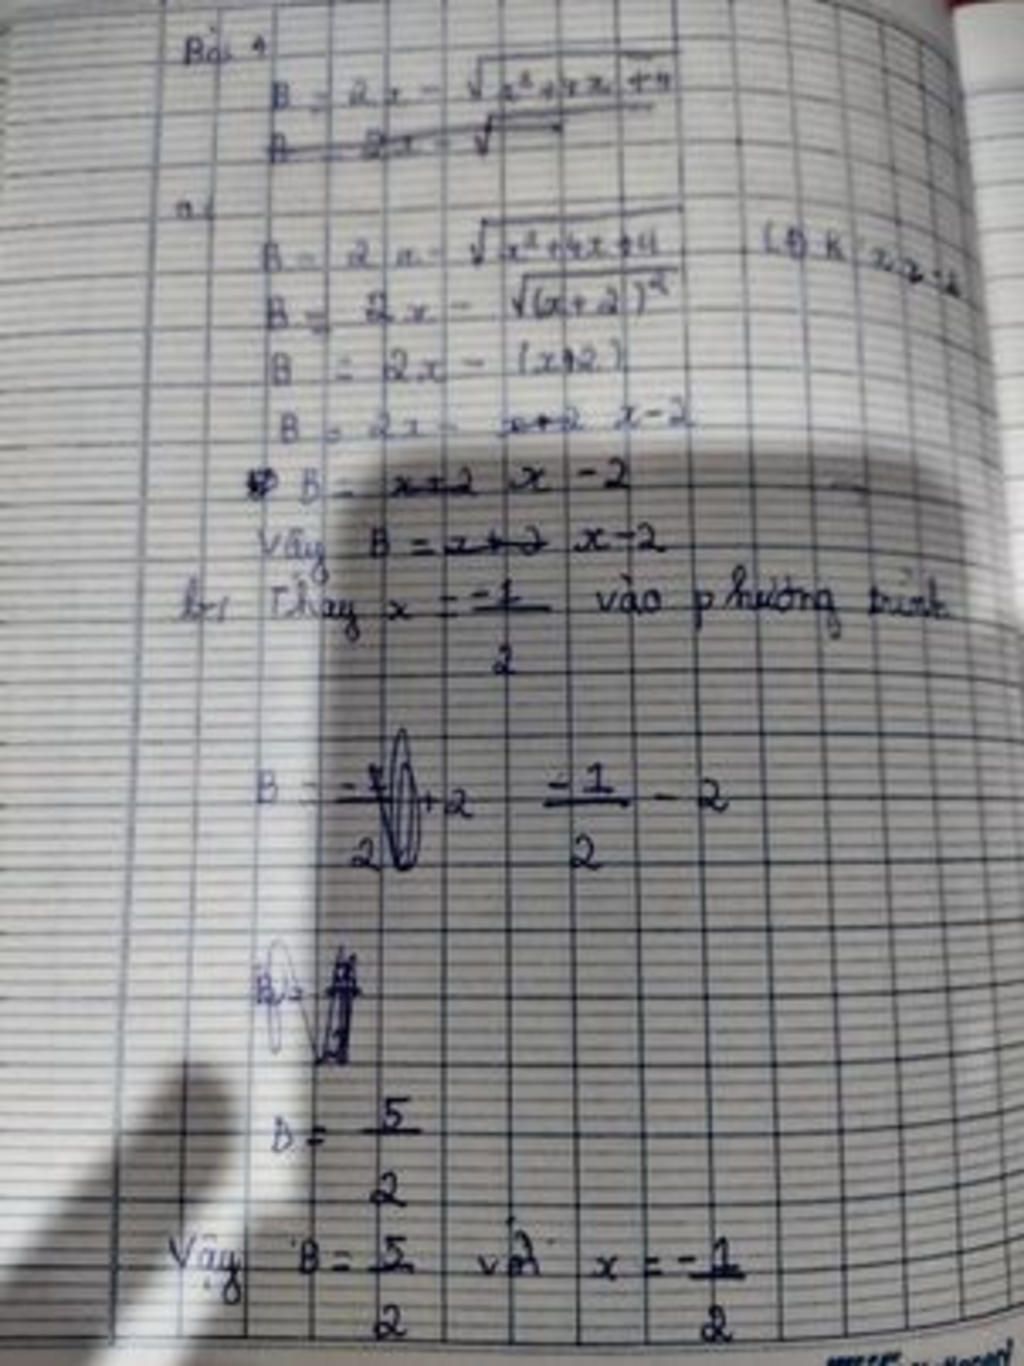 Bài 4
B = 2x - √x²+4x+4
B = 2x - √
a,
B = 2x - √x²+4x+4 (ĐK: x ≥ -2
B = 2x - √(x+2)²
B = 2x - (x+2)
B = 2x - x+2 x-2
B = x+2 x - 2
Vậy B = x+2 x-2
b, Thay x = -1/2 vào phương trình
B = -1/2 +2 -1/2 - 2
B =
B = 5/2
Vậy B = 5/2 với x = -1/2